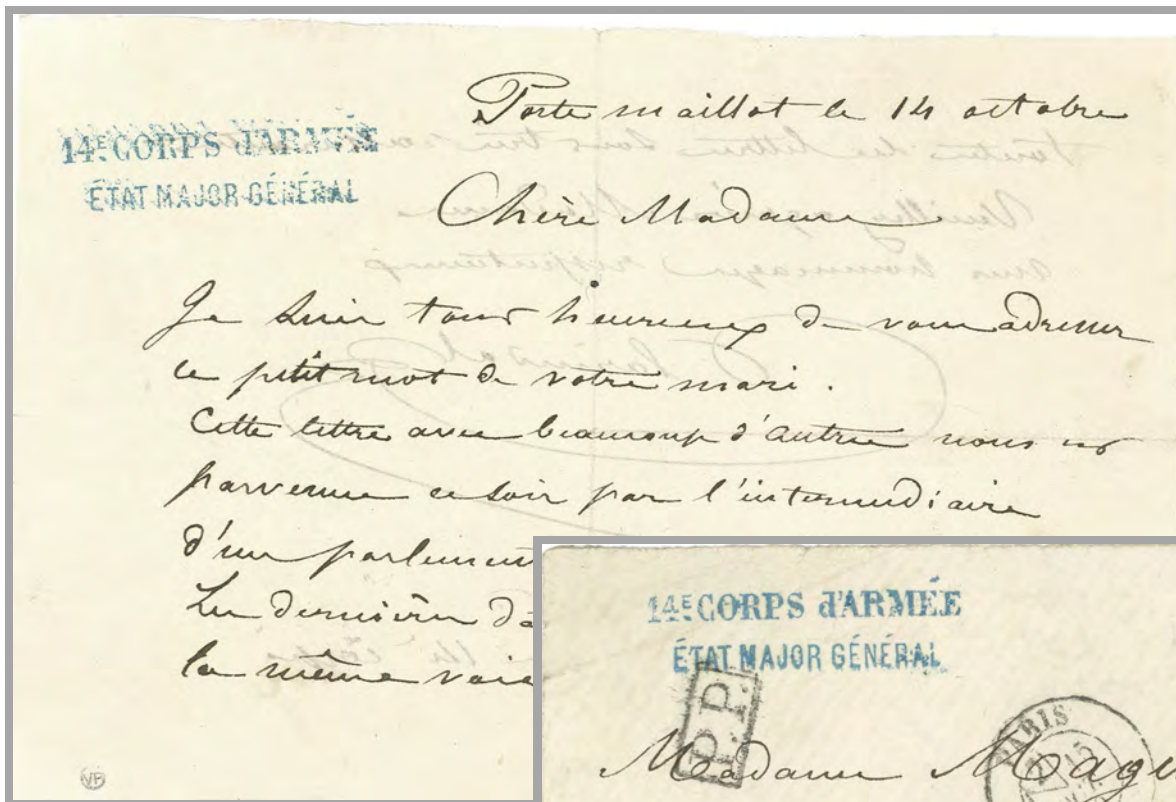 14E CORPS d'ARMÉE
ÉTAT MAJOR GÉNÉRAL
Porte maillot le 14 octobre
Chère Madame
Je suis tous heureux de vous adresser
ce petit mot de votre mari.
Cette lettre avec beaucoup d'autres nous est
parvenue ce soir par l'intermédiaire
d'un parlemen
la même voie
VB
14E CORPS d'ARMÉE
ÉTAT MAJOR GÉNÉRAL
P.P.
PARIS
Madame Mage